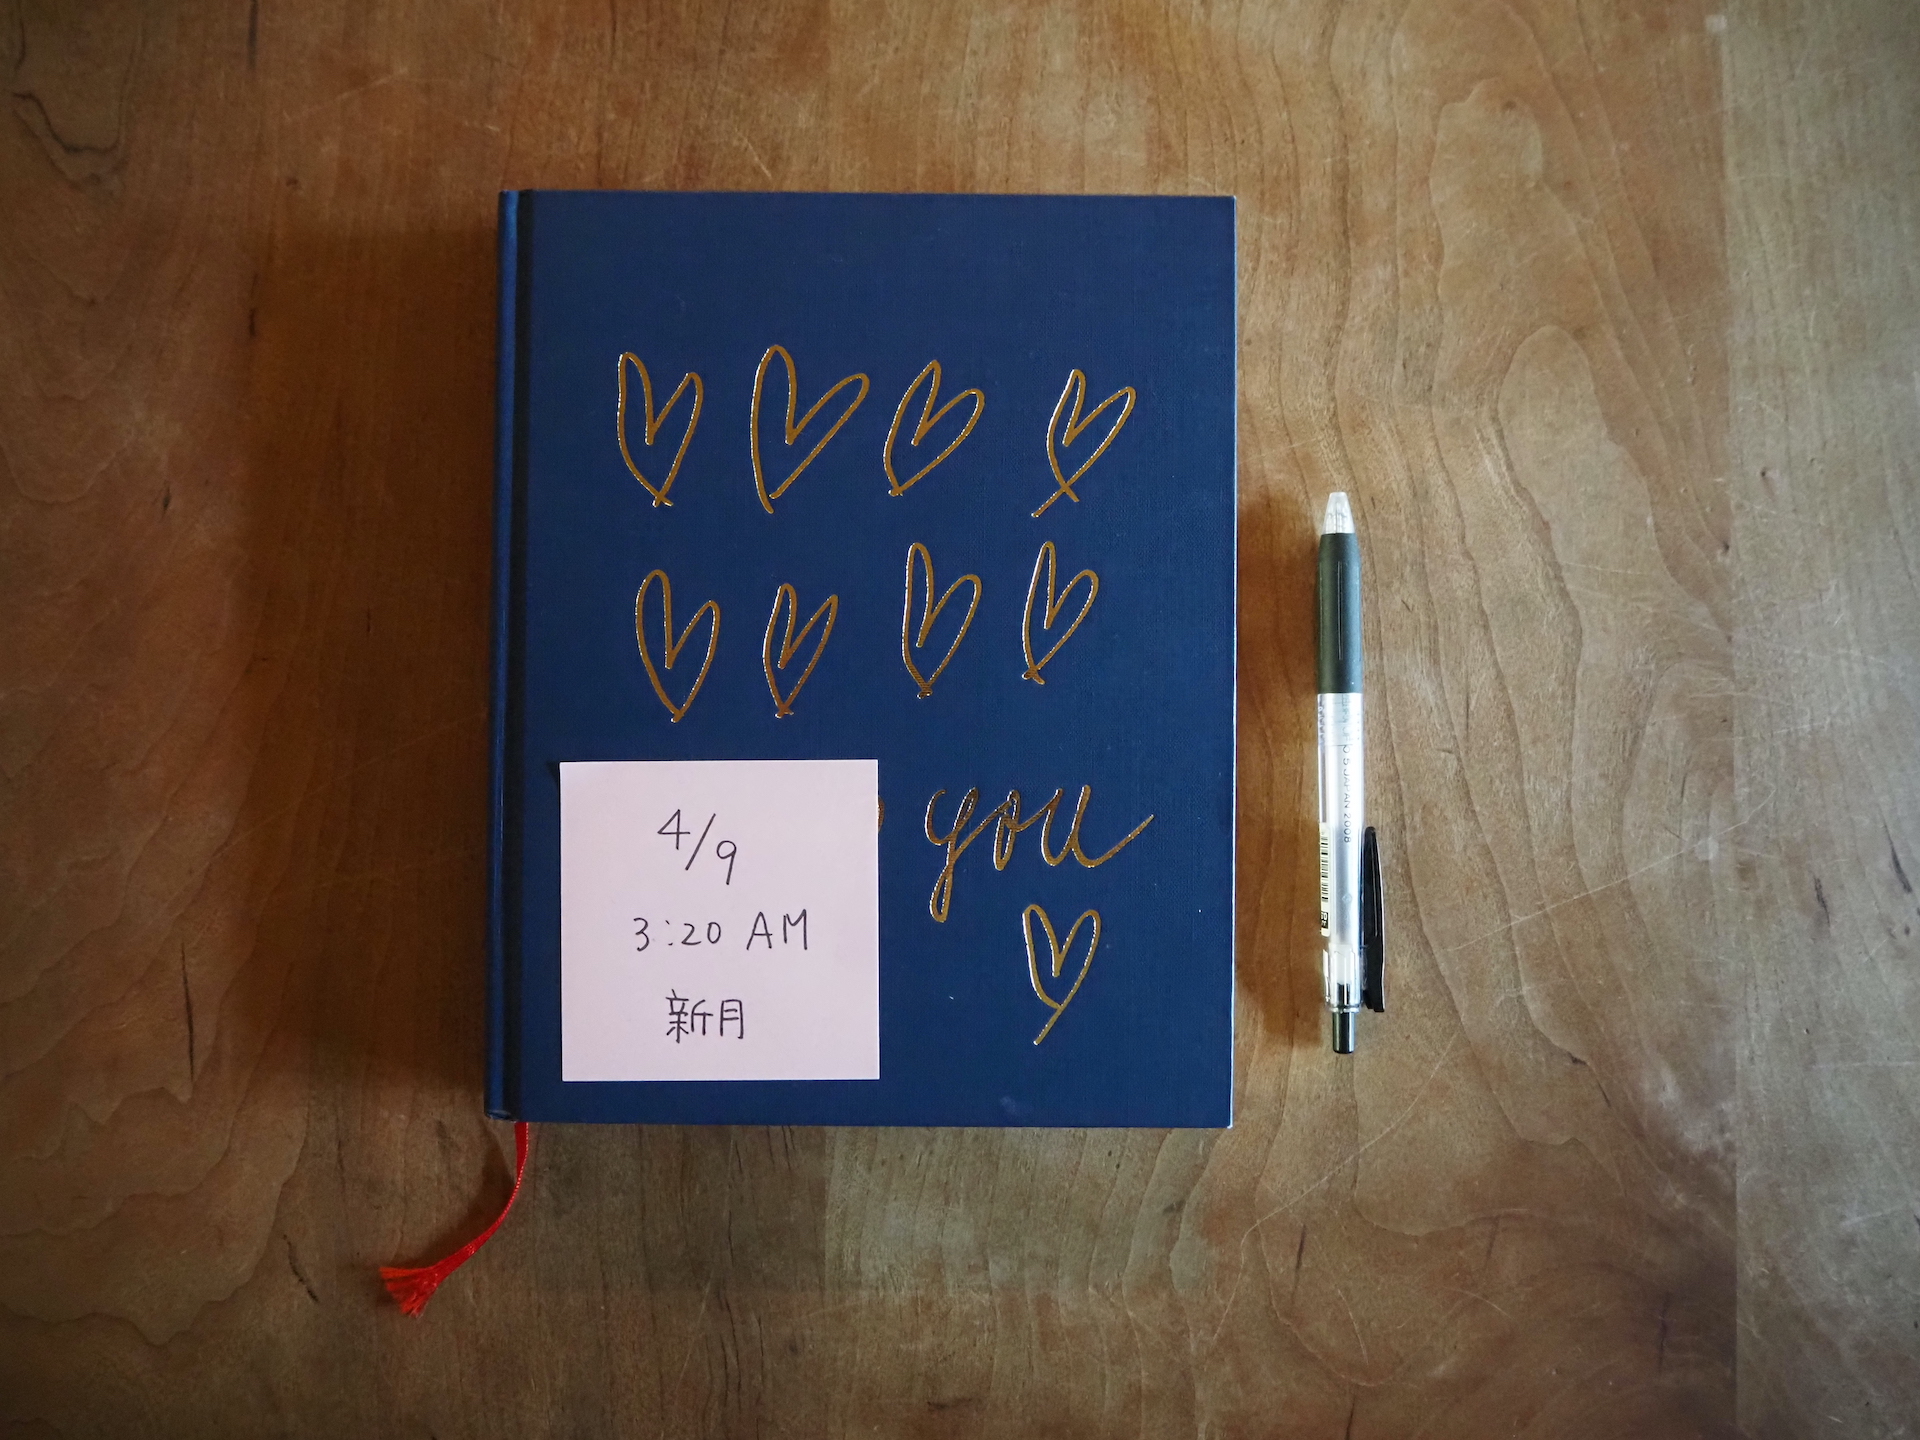 you
4/9
3:20 AM
新月